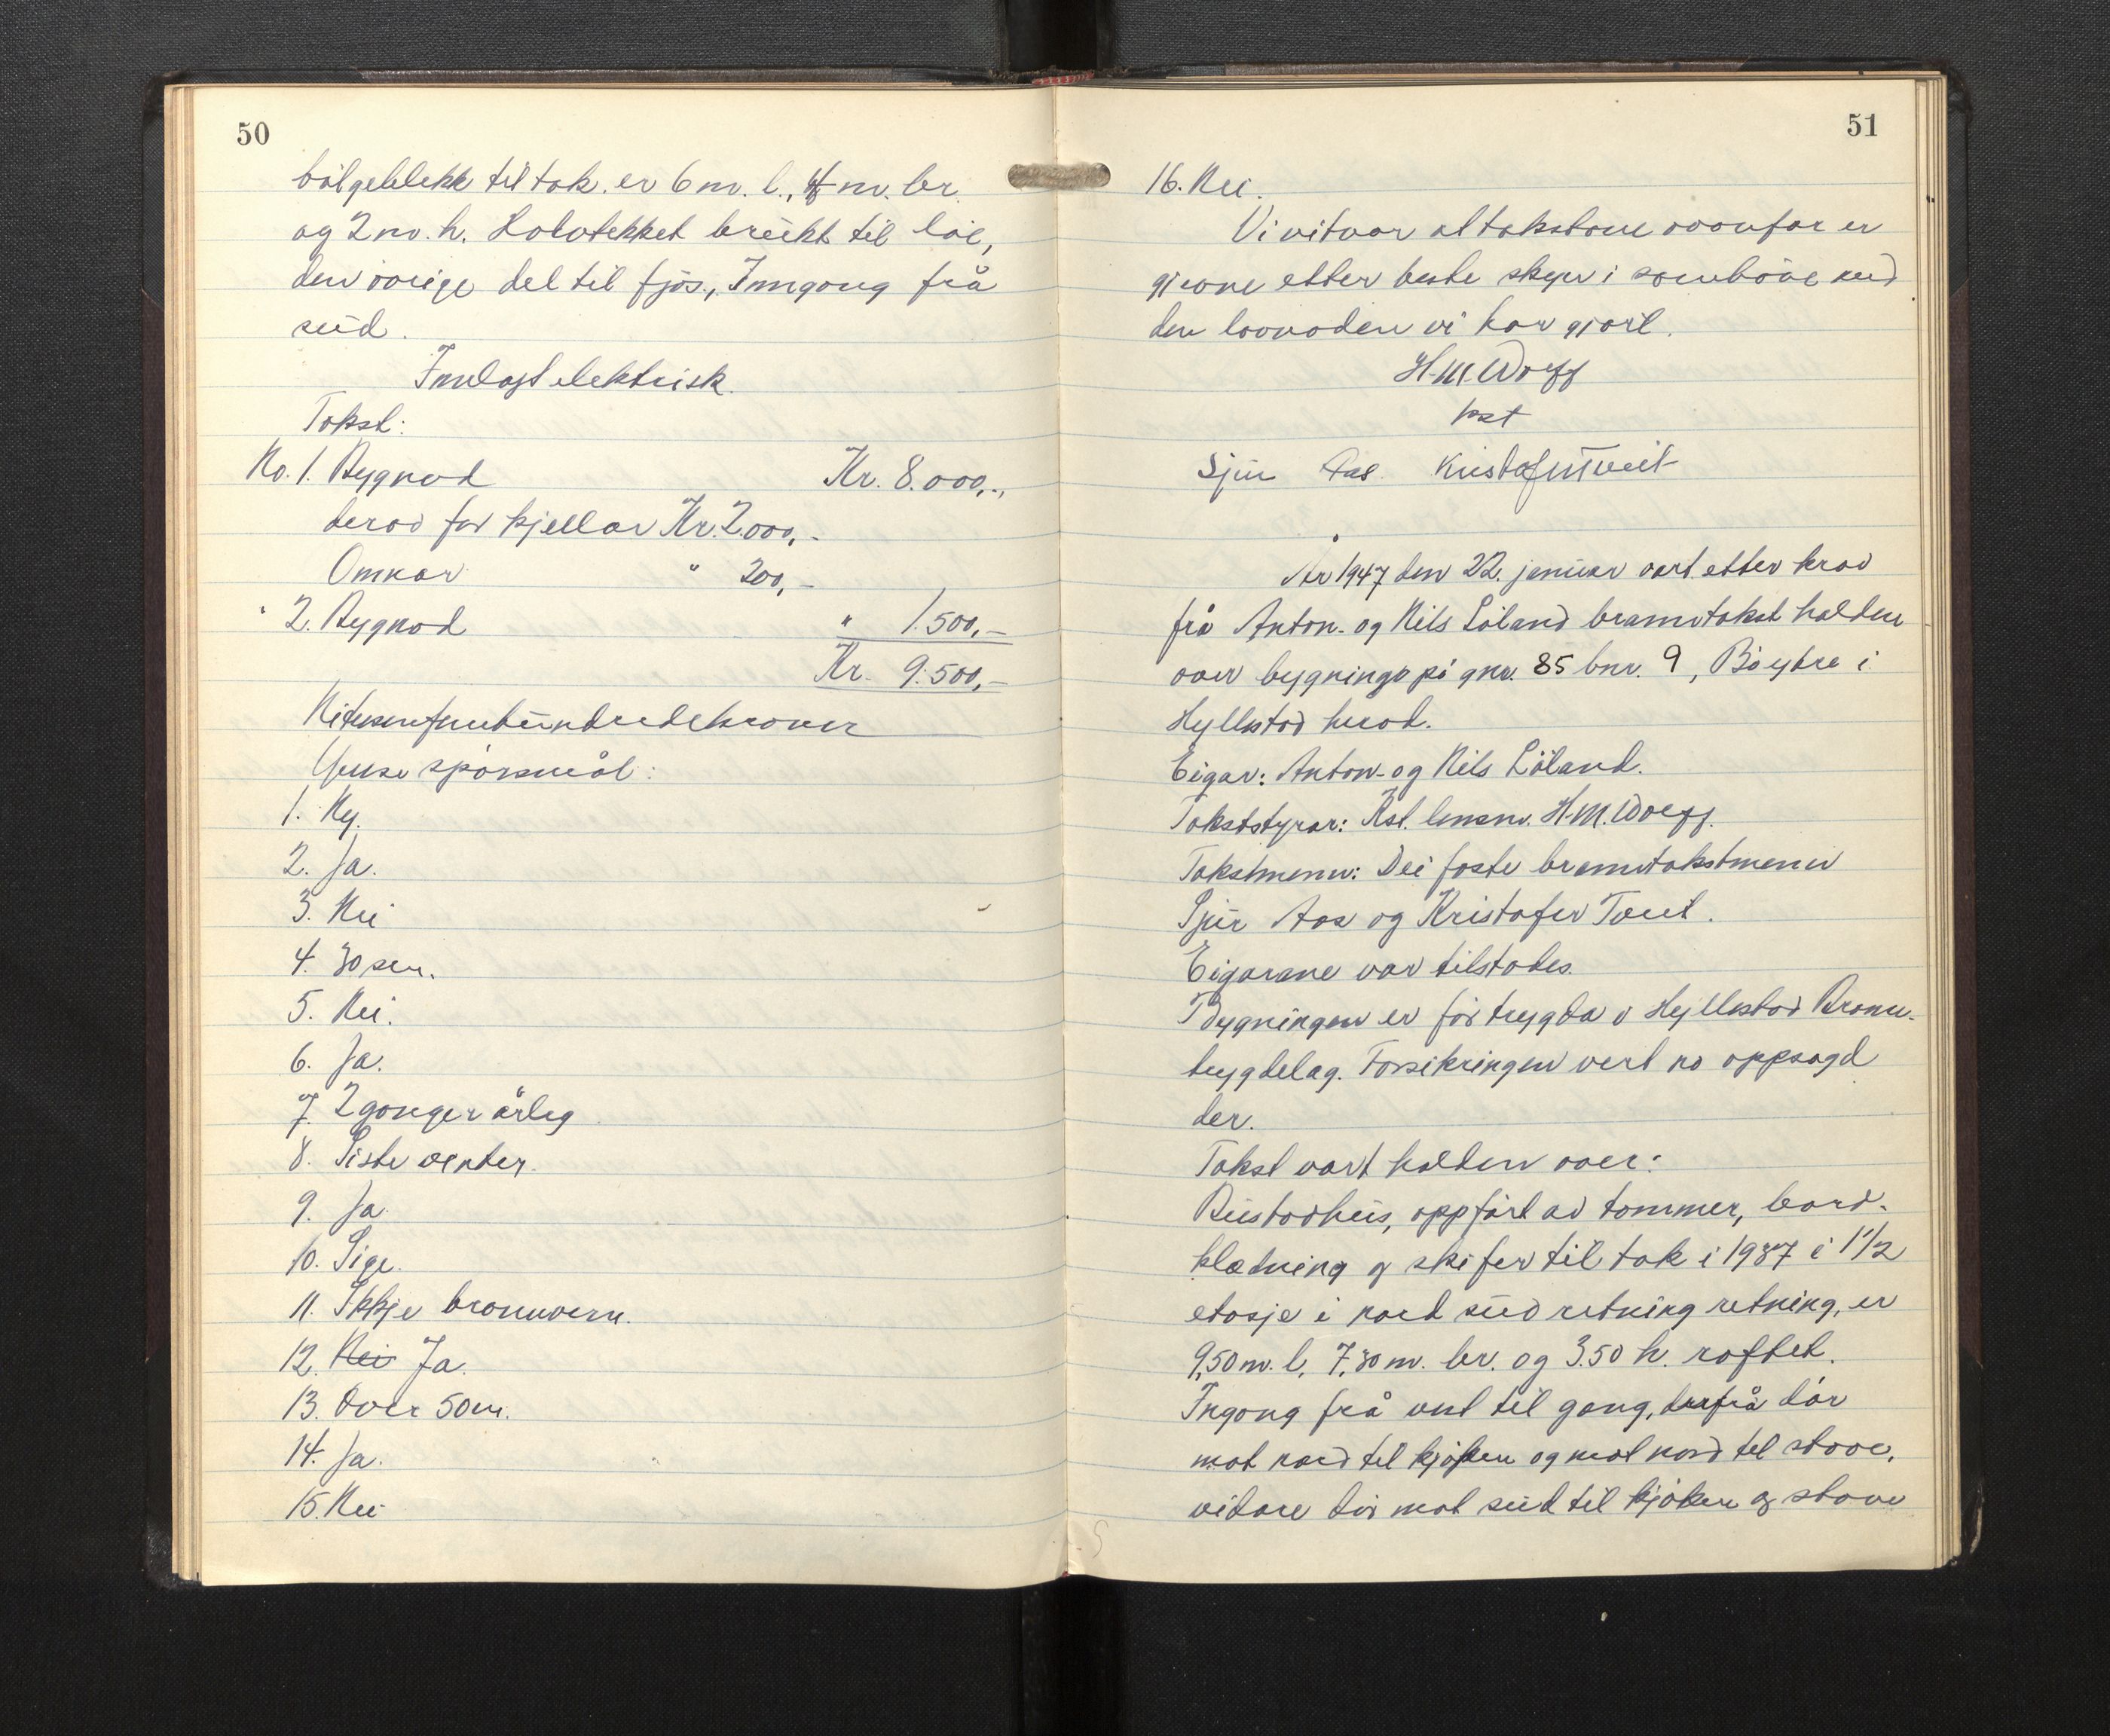 50
bølgeblekk til tak. er 6 m. l., 4 m. br.
og 2 m. h. Halvtekket brukt til løe,
den øvrige del til fjøs., Inngong frå
sud.
Innlagt elektrisk.
Takst:
No. 1. Bygnad Kr. 8.000,-,
derav for kjellar Kr. 2.000,-
Omnar " 200,-
" 2. Bygnad " 1.500,-
Kr. 9.500,-
Nitusenfemhundredekroner
Ymse spørsmål:
1. Ny.
2. Ja.
3. Nei
4. 30 sm.
5. Nei.
6. Ja.
7. 2 gonger årleg
8. Siste vinter.
9. Ja.
10. Sige.
11. Ikkje brannvern.
12. Nei Ja.
13. Over 50 m.
14. Ja.
15. Nei
51
16. Nei.
Vi vitnar at takstane ovanfor er
gjevne etter beste skyn i samhøve med
den lovnaden vi har gjort.
H.M. Worff
kst
Sjur Aas Kristofer Tveit
År 1947 den 22. januar vart etter krav
frå Anton- og Nils Løland branntakst halden
over bygninga på gnr. 85 bnr. 9, Bø ytre i
Hyllestad herad.
Eigar: Anton- og Nils Løland.
Takststyrar: Kst. lensm. H.M. Worff.
Takstmenn: Dei faste branntakstmenn
Sjur Aas og Kristofer Tveit.
Eigarane var tilstades.
Bygningen er før trygda i Hyllestad Brann-
trygdelag. Forsikringen vert no oppsagd
der.
Takst vart halden over:
Bustadhus, oppført av tømmer, bord-
klædning og skifer til tak i 1937 i 1 1/2
etasje i nord sud retning retning, er
9,50 m. l. 7,30 m. br. og 3.50 h. røftet.
Ingong frå vest til gang, derfrå dør
mot nord til kjøken og mot nord til stove,
vidare dør mot sud til kjøken og stove